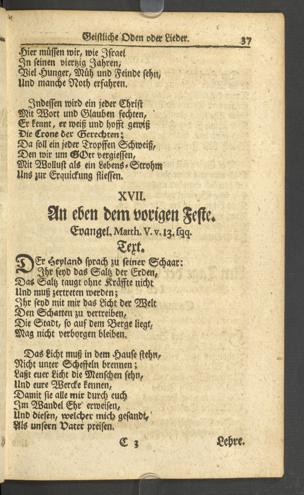 Geistliche Oden oder Lieder. 37
Hier müssen wir, wie Israel
In seinen vierzig Jahren,
Viel Hunger, Müh und Feinde sehn,
Und manche Noth erfahren.
Indessen wird ein jeder Christ
Mit Wort und Glauben fechten,
Er kennt, er weiß und hofft gewiß
Die Crone der Gerechten;
Da soll ein jeder Tropffen Schweiß,
Den wir um GOtt vergiessen,
Mit Wollust als ein Lebens-Strohm
Uns zur Erquickung fliessen.
XVII.
An eben dem vorigen Feste.
Evangel. Matth. V. v. 13. sqq.
Text.
DEr Heyland sprach zu seiner Schaar:
Ihr seyd das Saltz der Erden,
Das Saltz taugt ohne Kräffte nicht
Und muß zertreten werden;
Ihr seyd mit mir das Licht der Welt
Den Schatten zu vertreiben,
Die Stadt, so auf dem Berge liegt,
Mag nicht verborgen bleiben.
Das Licht muß in dem Hause stehn,
Nicht unter Scheffeln brennen;
Laßt euer Licht die Menschen sehn,
Und eure Wercke kennen,
Damit sie alle mir durch euch
Im Wandel Ehr' erweisen,
Und diesen, welcher mich gesandt,
Als unsern Vater preisen.
C 3 Lehre.